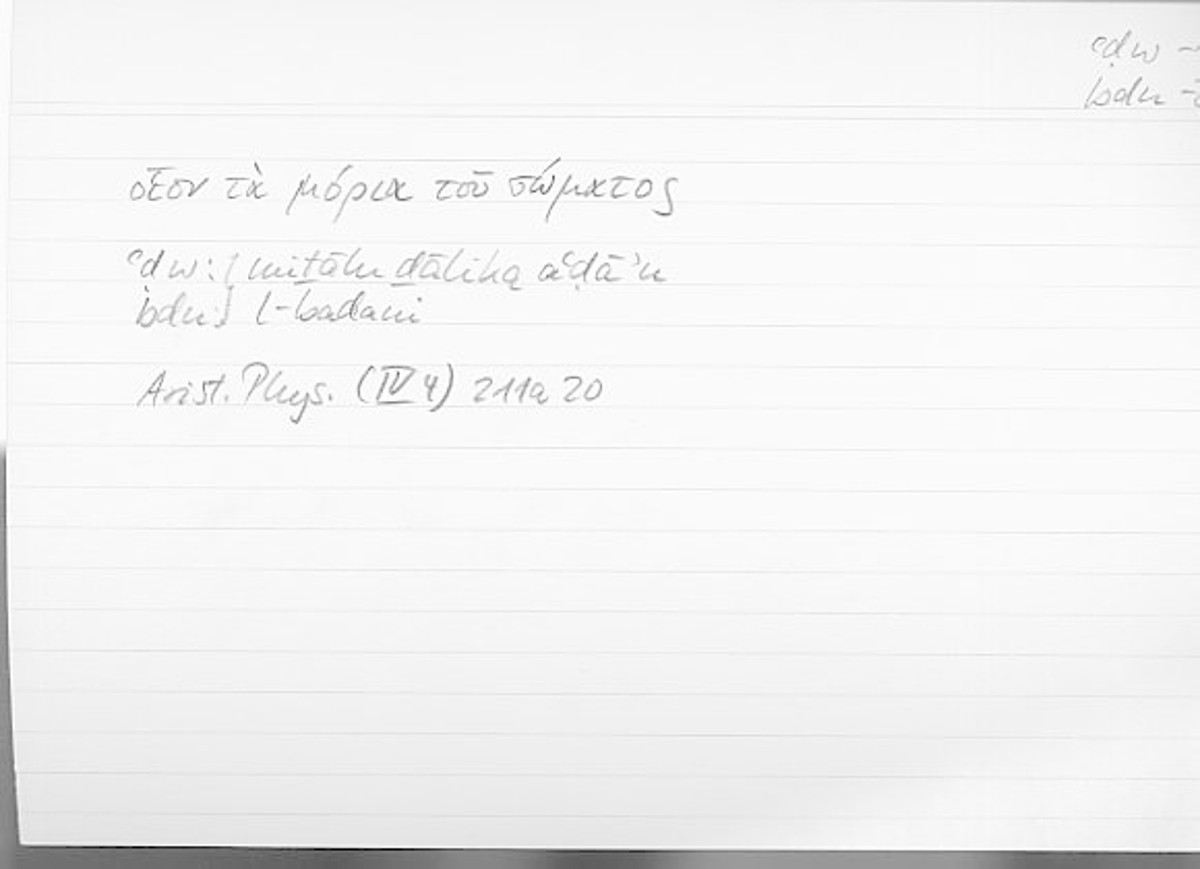 ʿḍw –
bdn –
οἷον τὰ μόρια τοῦ σώματος
ʿḍw: { miṯālu ḏālika aʿḍāʾu
bdn: } l-badani
Arist. Phys. (IV 4) 211a 20